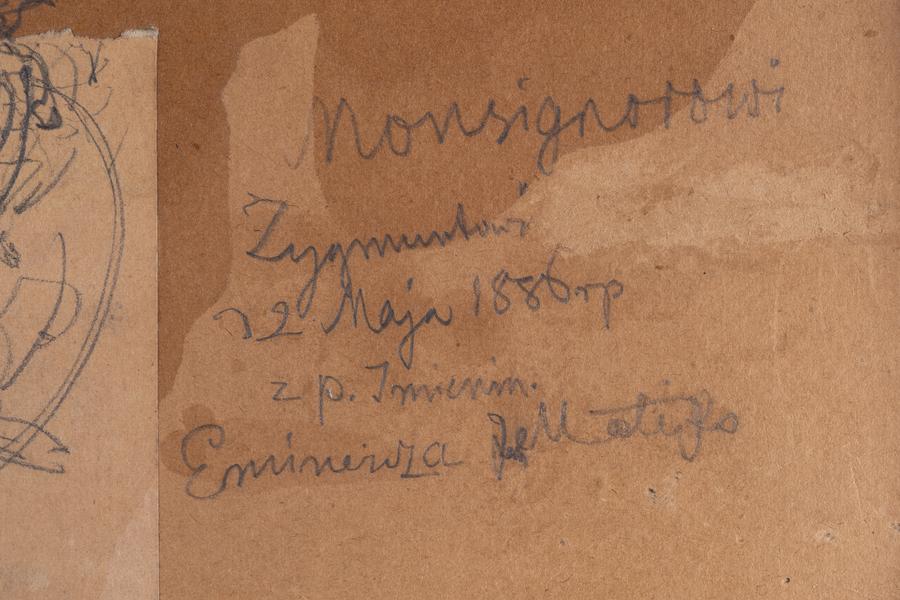 Monsignorowi
Zygmuntowi
d 2 Maja 1886 rp
z p. Imienin.
Eminencza JMatejko